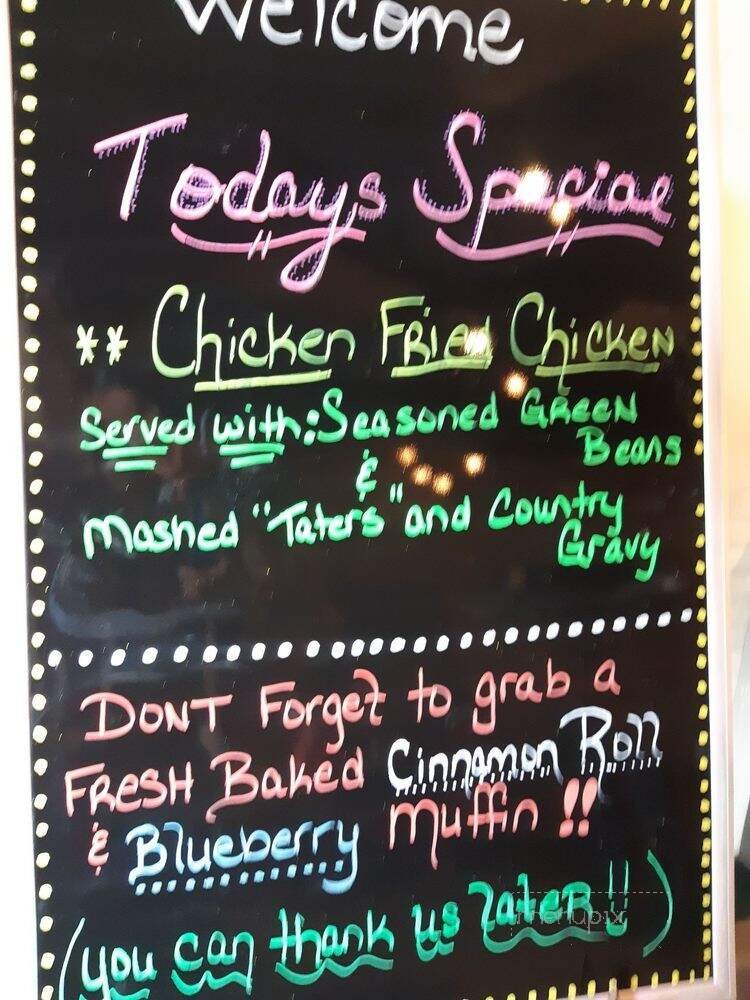 Welcome
Todays Special
** Chicken Fried Chicken
Served with: Seasoned GREEN
Beans
&
Mashed "Taters" and Country
Gravy
DONT Forget to grab a
FRESH Baked Cinnamon Roll
& Blueberry Muffin !!
(you can thank us later!!)
menupix